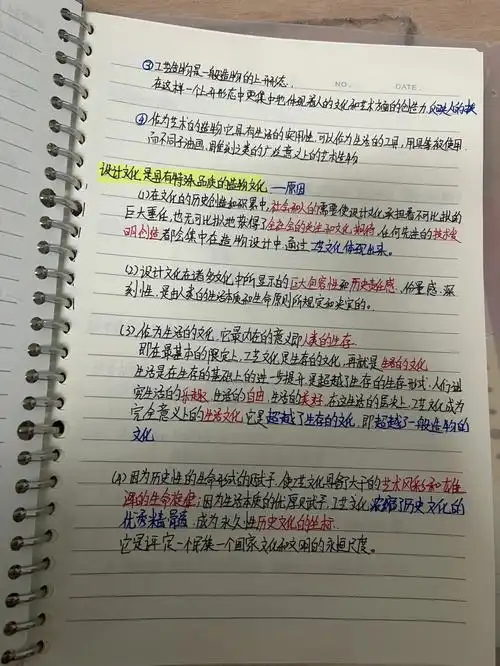 ③工艺造物是一般造物的上升形态.
NO. DATE.
在这样一个上升形态中更集中地体现着人的文化和艺术方面的创造力,
④作为艺术的造物它具有生活的实用性,可以作为生活的工具,用具等被使用.
而不同于油画,雕刻之类的广泛意义上的艺术造物
设计文化是具有特殊品质的造物文化 —原因
(1)在文化的历史创造和积累中,社会和人的需要使设计文化承担着不可比拟的
巨大重任,也无可比拟地获得了全社会的关注和文化期待,任何先进的技术发
明创造都会集中在造物设计中,通过工艺文化体现出来。
(2)设计文化在诸多文化中所显示的巨大包容性和历史责任感、份量感、深
刻性,是由人类的生活本质和生命原则所规定和决定的。
(3)作为生活的文化,它最内在的意义即人类的生存.
即在最基本的限度上,工艺文化是生存的文化,再就是生活的文化
生活是在生存的基础上的进一步提升,是超越了生存的生存形式.人们讲
究生活的乐趣、生活的自由,生活的美好,在这生活的层次上,工艺文化成为
完全意义上的生活文化,它是超越了生存的文化,即超越了一般造物的
文化
(4)因为历史性的生命形式的赋予,使工艺文化具备了大千的艺术风采和
的生命旋律;因为生活本质的优厚赋予,工艺文化浓缩了历史文化的
优秀精髓,成为永久性历史文化的坐标.
它是评定一个民族一个国家文化和文明的永恒尺度。